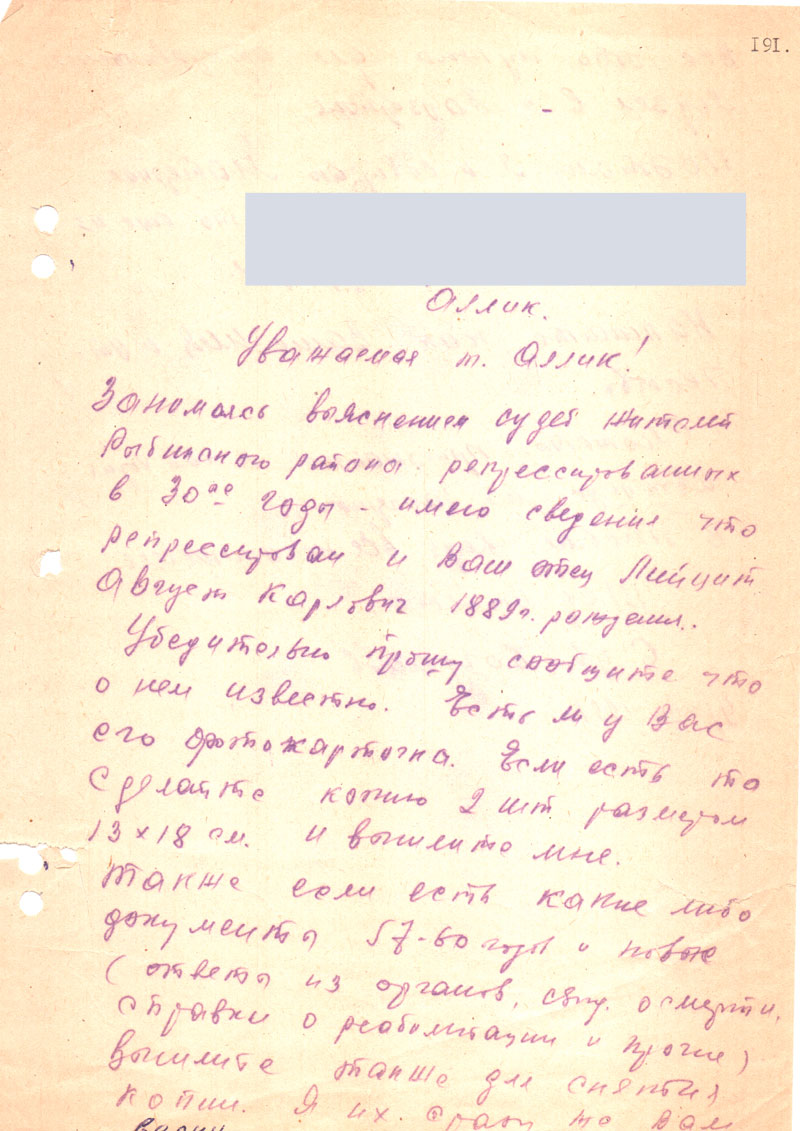 191.
Аллик.
Уважаемая т. Аллик!
Занимаясь выяснением судеб жителей
Рыбинского района репрессированных
в 30ые годы - имею сведения что
репрессирован и Ваш отец
Август Карлович 1889г. рождения.
Убедительно прошу сообщите что
о нем известно. Есть ли у Вас
его фотокарточка. Если есть то
сделайте копию 2 шт. размером
13 x 18 см. и вышлите мне.
Также если есть какие либо
документы 57-60 годов и новые
(ответы из органов, свид. о смерти,
справки о реабилитации и прочие)
вышлите также для снятия
копии. Я их сразу же Вам